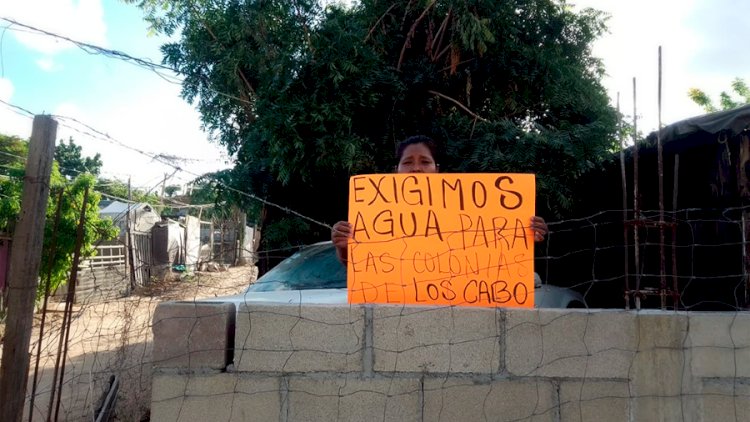 EXIGIMOS
AGUA PARA
LAS COLONIAS
DE LOS CABO